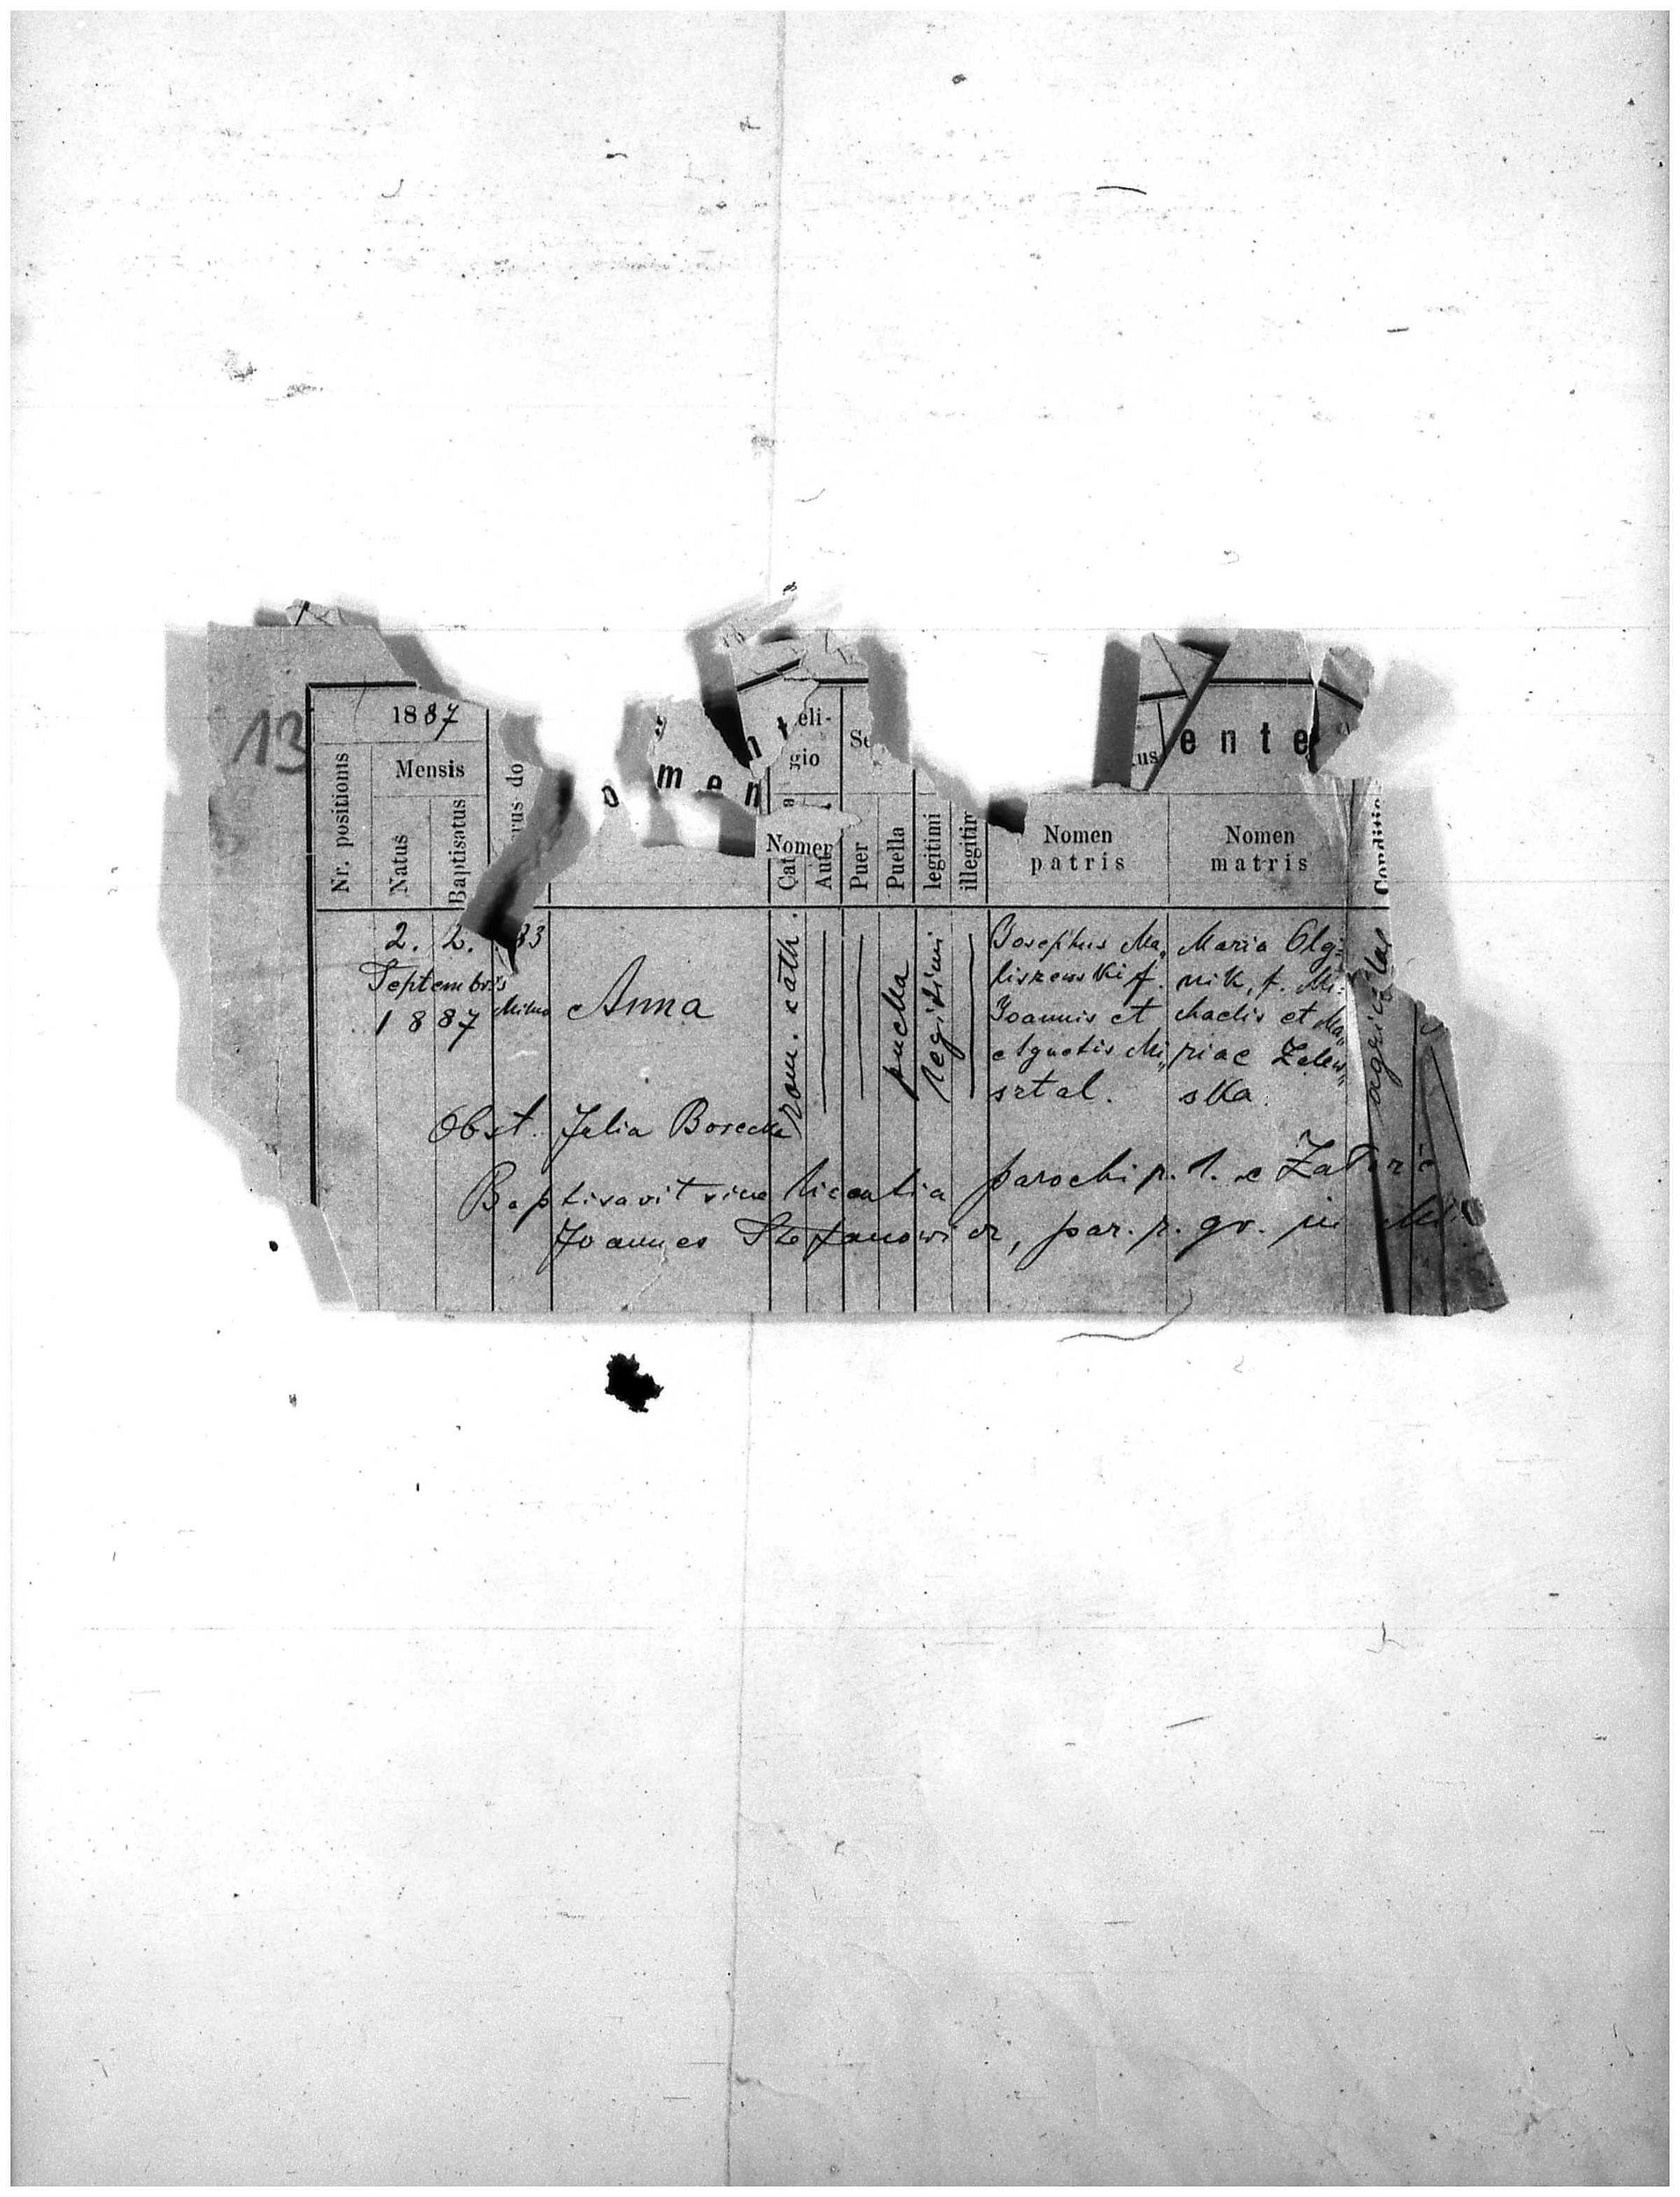 13
1887
eli-
gio
Se
tus
ente
Mensis
Nr. positionis
Natus
Baptisatus
rus do
omen
Nomen
Cat
Aut
Puer
Puella
legitimi
illegitim
Nomen
patris
Nomen
matris
Conditio
2. 2. 83
Septembris
1887
Anna
rom. cath.
puella
legitimi
Josephus Ma„
liszewski f.
Joannis et
Agnetis Mi„
sztal.
Maria Olej=
nik, f. Mi=
chaelis et Ma„
riae Zalew„
ska.
agricolae
Obst. Julia Borecka
Baptisavit vice licentia parochi r. l. e
Joannes Stefanowicz, par. r. gr. in